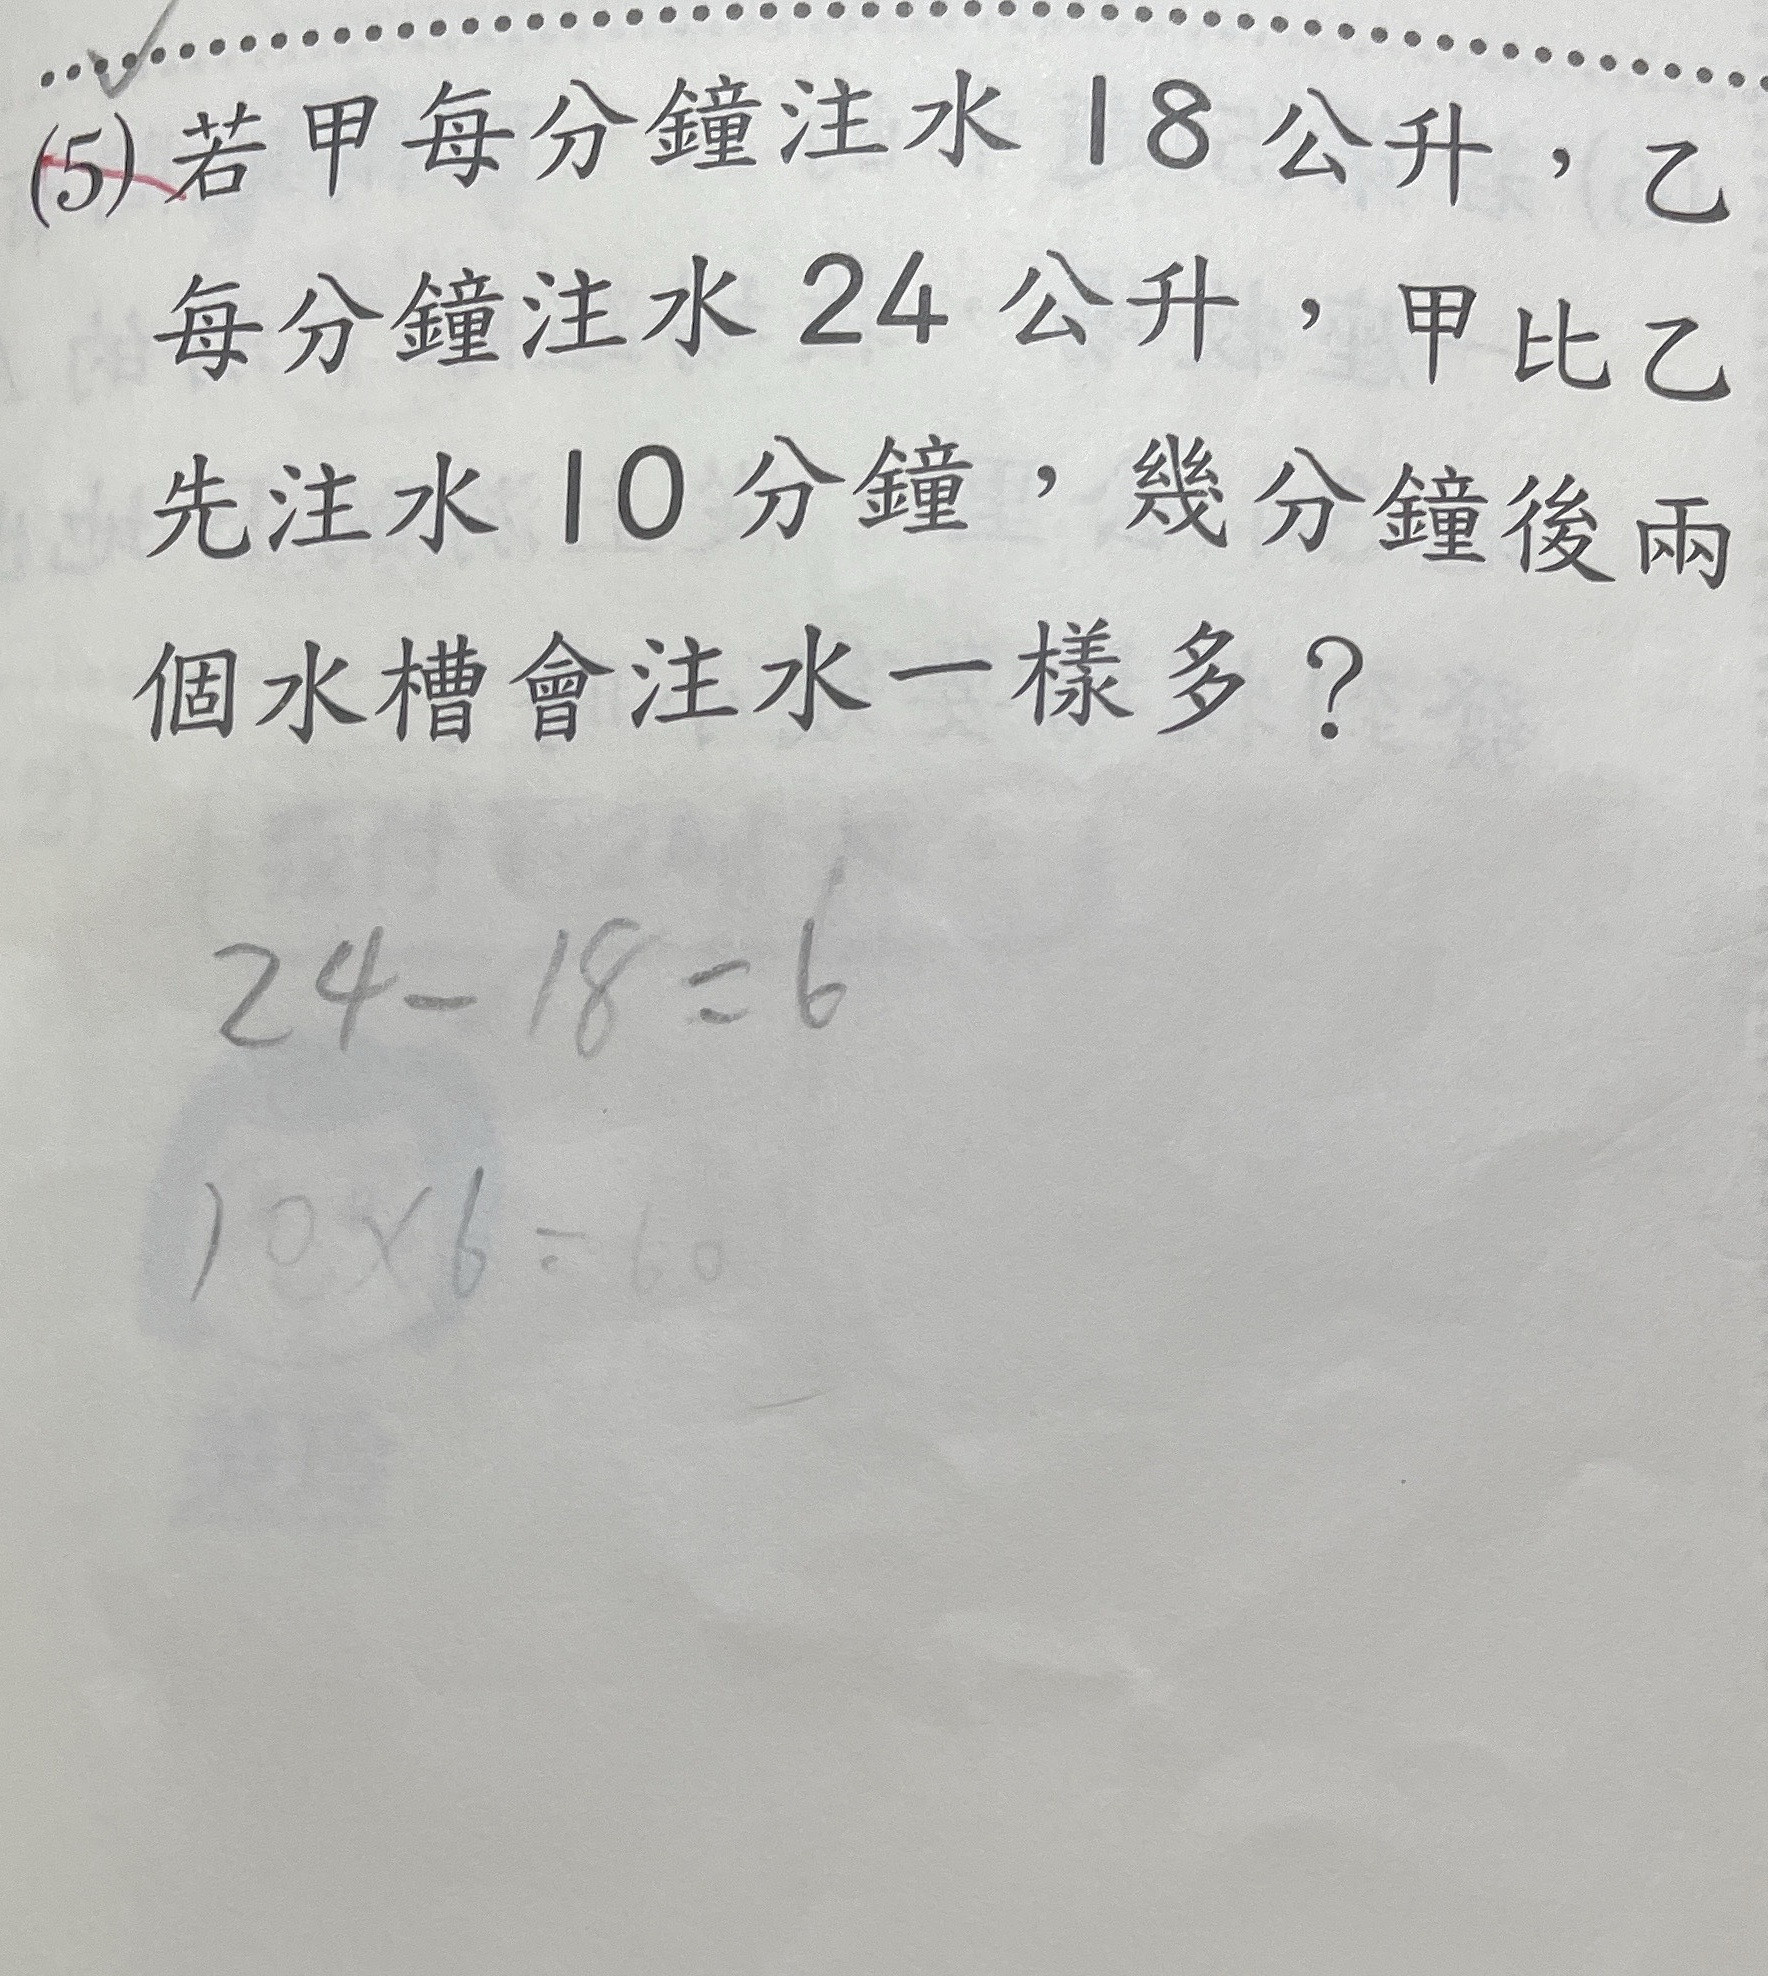 (5)若甲每分鐘注水18公升，乙
每分鐘注水24公升，甲比乙
先注水10分鐘，幾分鐘後兩
個水槽會注水一樣多？
24-18=6
10×6=60